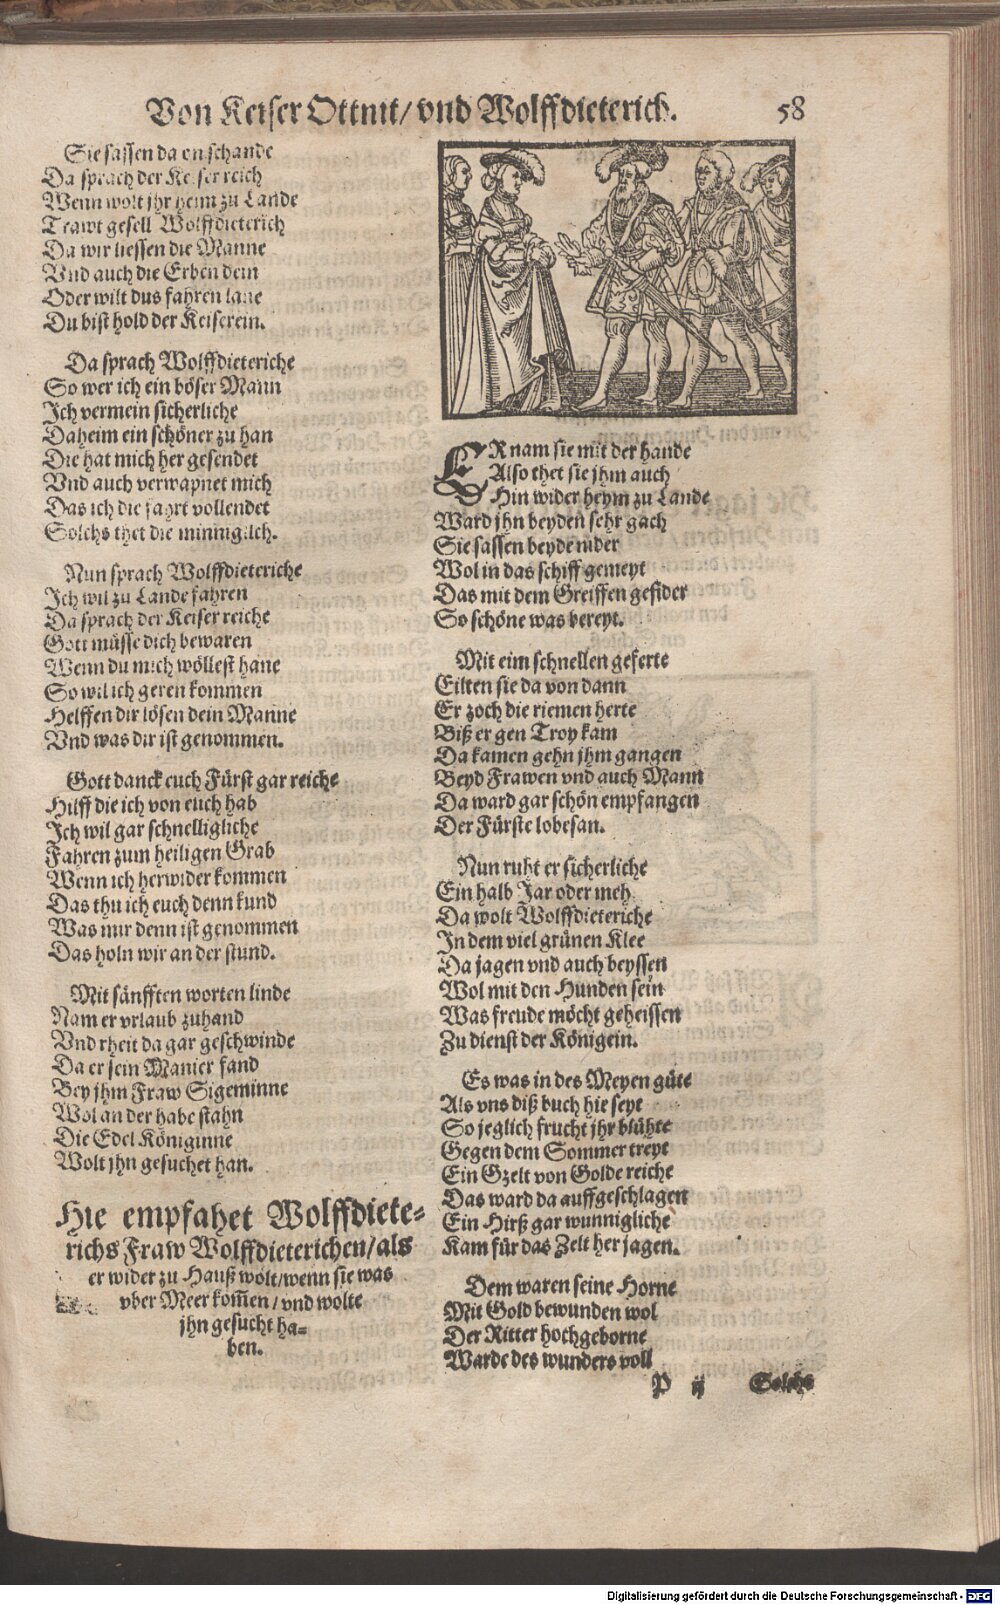 Von Keiser Ottnit/ vnd Wolffdieterich. 58
Sie sassen da on schande
Da sprach der Keiser reich
Wenn wolt jhr heim zu Lande
Trawt gesell Wolffdieterich
Da wir liessen die Manne
Vnd auch die Erben dein
Oder wilt dus fahren lane
Du bist hold der Keiserein.
Da sprach Wolffdieteriche
So wer ich ein böser Mann
Ich vermein sicherliche
Daheim ein schöner zu han
Die hat mich her gesendet
Vnd auch verwapnet mich
Das ich die fahrt vollendet
Solchs thet die minnigilch.
Nun sprach Wolffdieteriche
Ich wil zu Lande fahren
Da sprach der Keiser reiche
Gott müsse dich bewaren
Wenn du mich wöllest hane
So wil ich geren kommen
Helffen dir lösen dein Manne
Vnd was dir ist genommen.
Gott danck euch Fürst gar reiche
Hilff die ich von euch hab
Ich wil gar schnelligliche
Fahren zum heiligen Grab
Wenn ich herwider kommen
Das thu ich euch denn kund
Was mir denn ist genommen
Das holn wir an der stund.
Mit sänfften worten linde
Nam er vrlaub zuhand
Vnd rheit da gar geschwinde
Da er sein Manier fand
Bey jhm Fraw Sigeminne
Wol an der habe stahn
Die Edel Königinne
Wolt jhn gesuchet han.
Hie empfahet Wolffdiete-
richs Fraw Wolffdieterichen/als
er wider zu Hauß wolt/wenn sie was
vber Meer kom̃en/vnd wolte
jhn gesucht ha-
ben.
ER nam sie mit der hande
Also thet sie jhm auch
Hin wider heym zu Lande
Ward jhn beyden sehr gach
Sie sassen beyde nider
Wol in das schiff gemeyt
Das mit dem Greiffen gefider
So schöne was bereyt.
Mit eim schnellen geferte
Eilten sie da von dann
Er zoch die riemen herte
Biß er gen Troy kam
Da kamen gehn jhm gangen
Beyd Frawen vnd auch Mann
Da ward gar schön empfangen
Der Fürste lobesan.
Nun ruht er sicherliche
Ein halb Jar oder meh
Da wolt Wolffdieteriche
In dem viel grünen Klee
Da jagen vnd auch beyssen
Wol mit den Hunden sein
Was freude möcht geheissen
Zu dienst der Königein.
Es was in des Meyen güte
Als vns diß buch hie seyt
So jeglich frucht jhr blühte
Gegen dem Sommer treyt
Ein Gzelt von Golde reiche
Das ward da auffgeschlagen
Ein Hirß gar wunnigliche
Kam für das Zelt her jagen.
Dem waren seine Horne
Mit Gold bewunden wol
Der Ritter hochgeborne
Warde des wunders voll
P ij Solchs
Digitalisierung gefördert durch die Deutsche Forschungsgemeinschaft - DFG